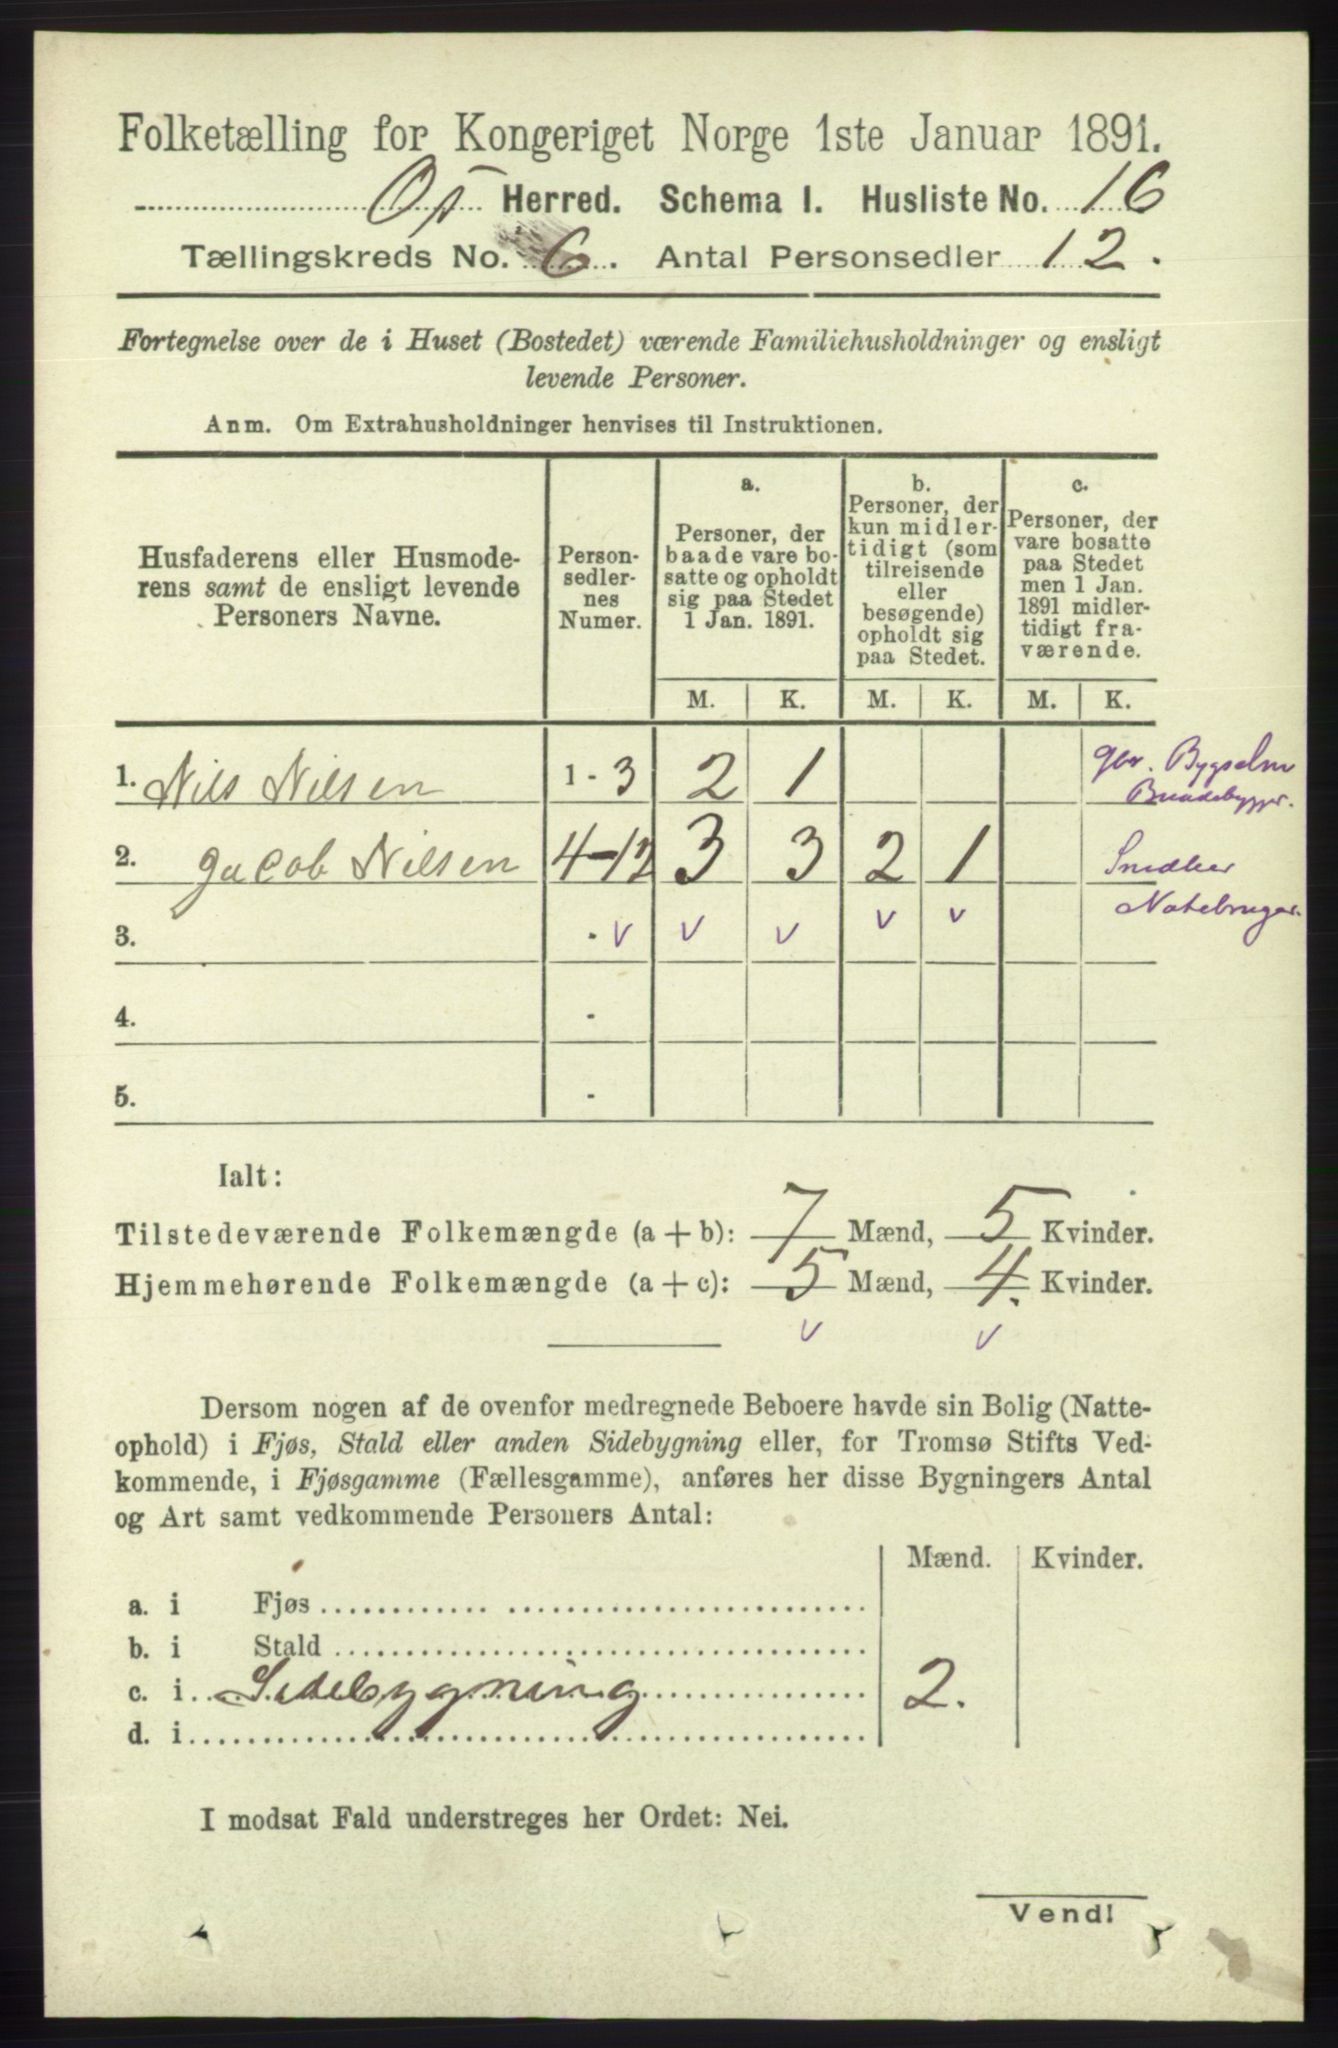 Folketælling for Kongeriget Norge 1ste Januar 1891.
Os Herred. Schema I. Husliste No. 16
Tællingskreds No. 6. Antal Personsedler 12.
Fortegnelse over de i Huset (Bostedet) værende Familiehusholdninger og ensligt
levende Personer.
Anm. Om Extrahusholdninger henvises til Instruktionen.
Husfaderens eller Husmode-
rens samt de ensligt levende
Personers Navne.
Person-
sedler-
nes
Numer.
a.
Personer, der
baade vare bo-
satte og opholdt
sig paa Stedet
1 Jan. 1891.
b.
Personer, der
kun midler-
tidigt (som
tilreisende
eller
besøgende)
opholdt sig
paa Stedet.
c.
Personer, der
vare bosatte
paa Stedet
men 1 Jan.
1891 midler-
tidigt fra-
værende.
M. K. M. K. M. K.
1. Nils Nilsen 1-3 2 1
gbr. Bygselm
2. Jacob Nilsen 4-12 3 3 2 1 Snedker
Notebruger.
3. - v v v v v
4. -
5. -
Ialt:
Tilstedeværende Folkemængde (a + b): 7 Mænd, 5 Kvinder.
Hjemmehørende Folkemængde (a + c): 5 Mænd, 4. Kvinder.
v v
Dersom nogen af de ovenfor medregnede Beboere havde sin Bolig (Natte-
ophold) i Fjøs, Stald eller anden Sidebygning eller, for Tromsø Stifts Ved-
kommende, i Fjøsgamme (Fællesgamme), anføres her disse Bygningers Antal
og Art samt vedkommende Personers Antal:
Mænd. Kvinder.
a. i Fjøs
b. i Stald
c. i Sidebygning 2.
d. i
I modsat Fald understreges her Ordet: Nei.
Vend!